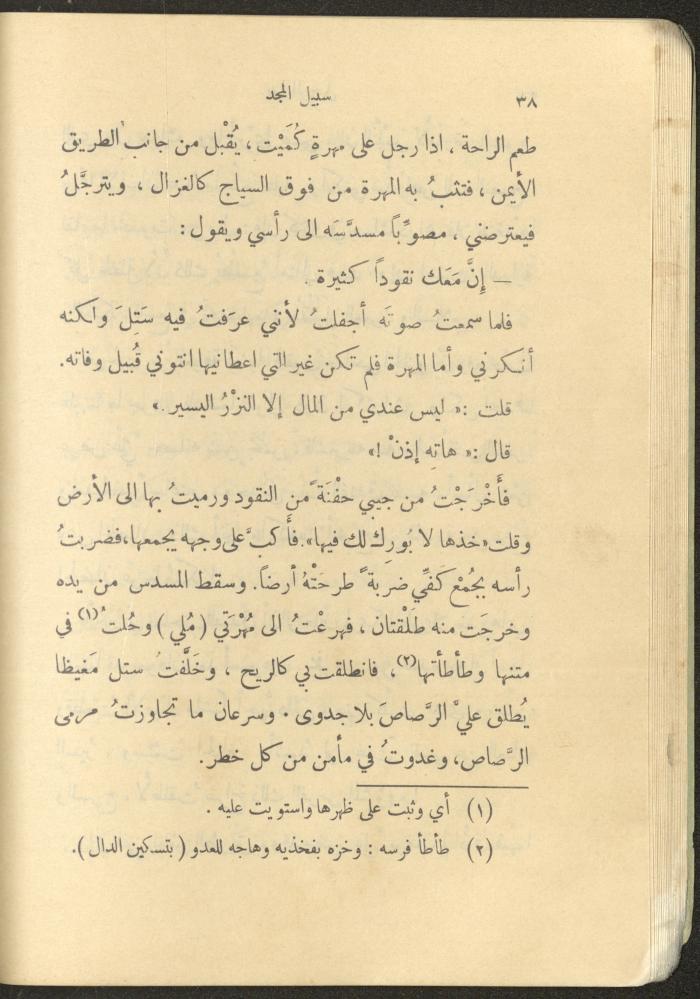 ٣٨ سبيل المجد
طعم الراحة ، اذا رجل على مهرةٍ كُمَيْت ، يُقْبل من جانب الطريق
الأيمن ، فتثبُ به المهرة من فوق السياج كالغزال ، ويترجَّلُ
فيعترضني ، مصوِّباً مسدَّسَه الى رأسي ويقول :
— إِنَّ مَعَك نقوداً كثيرة .
فلما سمعتُ صوتَه أجفلتُ لأنني عرَفتُ فيه سَتِلَ ولكنه
أنكرني وأما المهرة فلم تكن غير التي اعطانيها انتوني قُبيل وفاته.
قلت :« ليس عندي من المال إلا النزْرُ اليسير .»
قال :« هاتِه إذنْ !»
فأَخْرَجْتُ من جيبي حفْنَةً من النقود ورميتُ بها الى الأرض
وقلت «خذها لا بُورِك لك فيها». فأَكبَّ على وجهه يجمعها، فضربتُ
رأسه بجُمْع كَفِّي ضربةً طرحَتْهُ أرضاً. وسقط المسدس من يده
وخرجَت منه طَلْقتان ، فهرعْتُ الى مُهْرَتي ( مُلي ) وحُلتُ (١) في
متنها وطأطأتها (٢)، فانطلقت بي كالريح ، وخَلَّفتُ ستل مَغيظا
يُطلق عليَّ الرَّصاصَ بلا جدوى . وسرعان ما تجاوزتُ مرمى
الرَّصاص، وغدوتُ في مأمن من كل خطر.
(١) أي وثبت على ظهرها واستويت عليه .
(٢) طأطأ فرسه : وخزه بفخذيه وهاجه للعدو ( بتسكين الدال ).